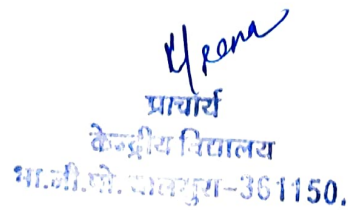 Meena
प्राचार्य
केन्द्रीय विद्यालय
-361150.